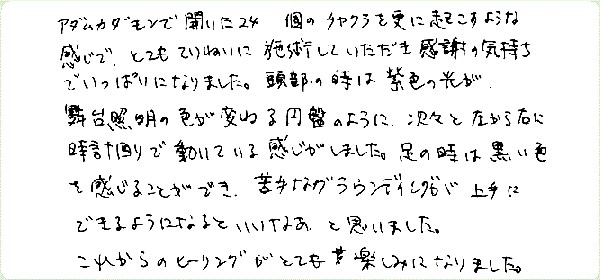 アダムカダモンで開いた24個のチャクラを更に起こすような
感じで、とてもていねいに施術していただき感謝の気持ち
でいっぱいになりました。頭部の時は紫色の光が、
舞台照明の色が変わる円盤のように、次々と左から右に
時計回りで動いている感じがしました。足の時は黒い色
を感じることができ、苦手なグラウンディングが上手に
できるようになるといいなあ、と思いました。
これからのヒーリングがとても楽しみになりました。